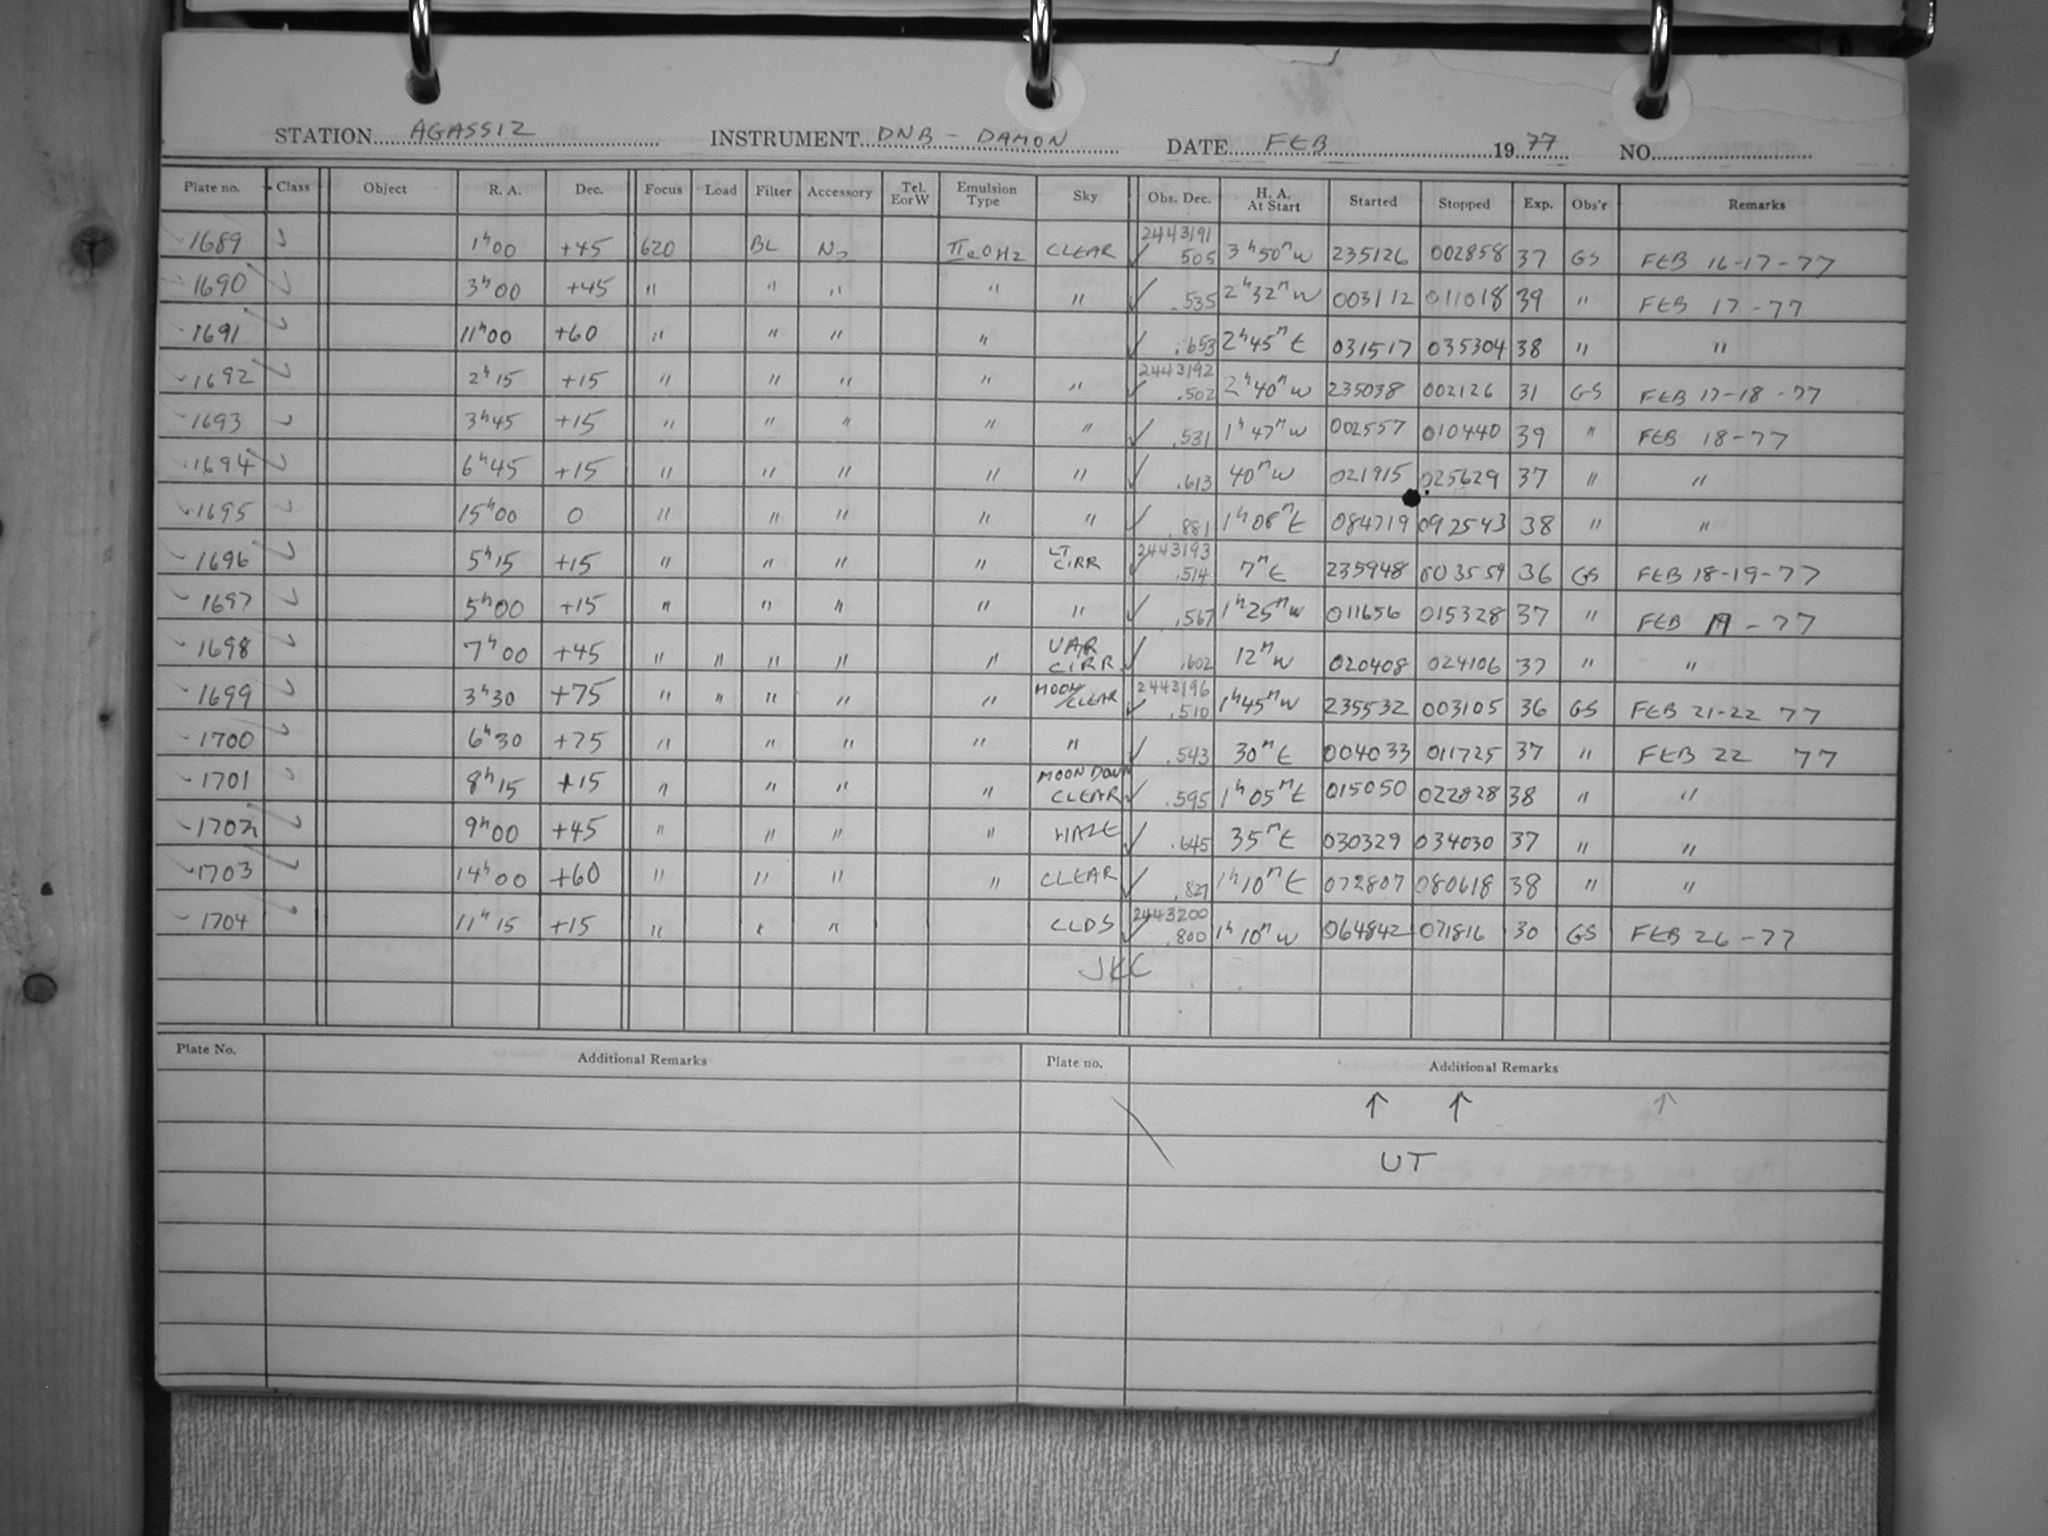 STATION AGASSIZ INSTRUMENT DNB - DAMON DATE FEB 1977 NO.
Plate no. Class Object R. A. Dec. Focus Load Filter Accessory Tel. E or W Emulsion Type Sky Obs. Dec. H. A. At Start Started Stopped Exp. Obs'r Remarks
1689 1h00 +45 620 BL N2 IIaO H2 CLEAR 2443191 .505 3h50m W 235126 002858 37 GS FEB 16-17-77
1690 3h00 +45 " " " " " .535 2h32m W 003112 011018 39 " FEB 17-77
1691 11h00 +60 " " " " .653 2h45m E 031517 035304 38 " "
1692 2h15 +15 " " " " " 2443192 .502 2h40m W 235038 002126 31 GS FEB 17-18-77
1693 3h45 +15 " " " " " .531 1h47m W 002557 010440 39 " FEB 18-77
1694 6h45 +15 " " " " " .613 40m W 021915 025629 37 " "
1695 15h00 0 " " " " " .881 1h08m E 084719 092543 38 " "
1696 5h15 +15 " " " " LT CIRR 2443193 .514 7m E 235948 003559 36 GS FEB 18-19-77
1697 5h00 +15 " " " " " .567 1h25m W 011656 015328 37 " FEB 19-77
1698 7h00 +45 " " " " " VAR CIRR .602 12m W 020408 024106 37 " "
1699 3h30 +75 " " " " " MOON/CLEAR 2443196 .510 1h45m W 235532 003105 36 GS FEB 21-22 77
1700 6h30 +75 " " " " " .543 30m E 004033 011725 37 " FEB 22 77
1701 8h15 +15 " " " " MOON DOWN CLEAR .595 1h05m E 015050 022828 38 " "
1702 9h00 +45 " " " " HAZE .645 35m E 030329 034030 37 " "
1703 14h00 +60 " " " " CLEAR .827 1h10m E 072807 080618 38 " "
1704 11h15 +15 " " " CLDS 2443200 .800 1h10m W 064842 071816 30 GS FEB 26-77
JKC
Plate No. Additional Remarks Plate no. Additional Remarks
↑ ↑ ↑
UT